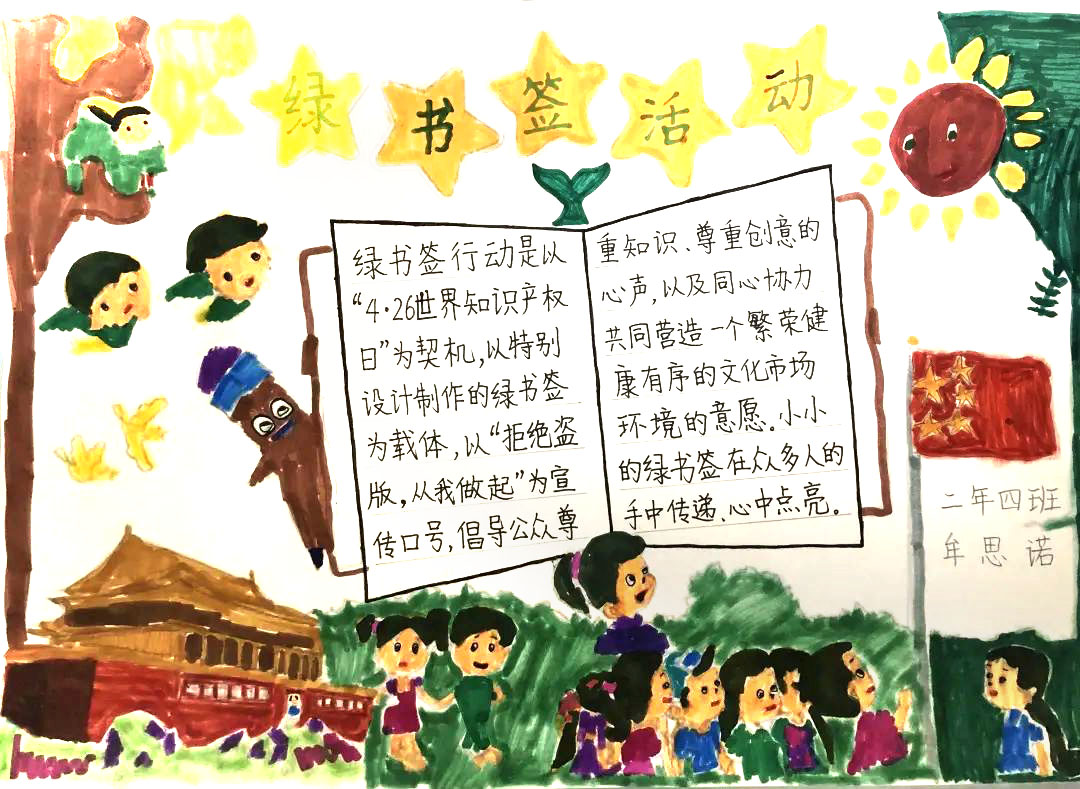 绿书签活动
绿书签行动是以
“4·26世界知识产权
日”为契机,以特别
设计制作的绿书签
为载体,以“拒绝盗
版,从我做起”为宣
传口号,倡导公众尊
重知识、尊重创意的
心声,以及同心协力
共同营造一个繁荣健
康有序的文化市场
环境的意愿。小小
的绿书签在众多人的
手中传递、心中点亮。
二年四班
牟思诺